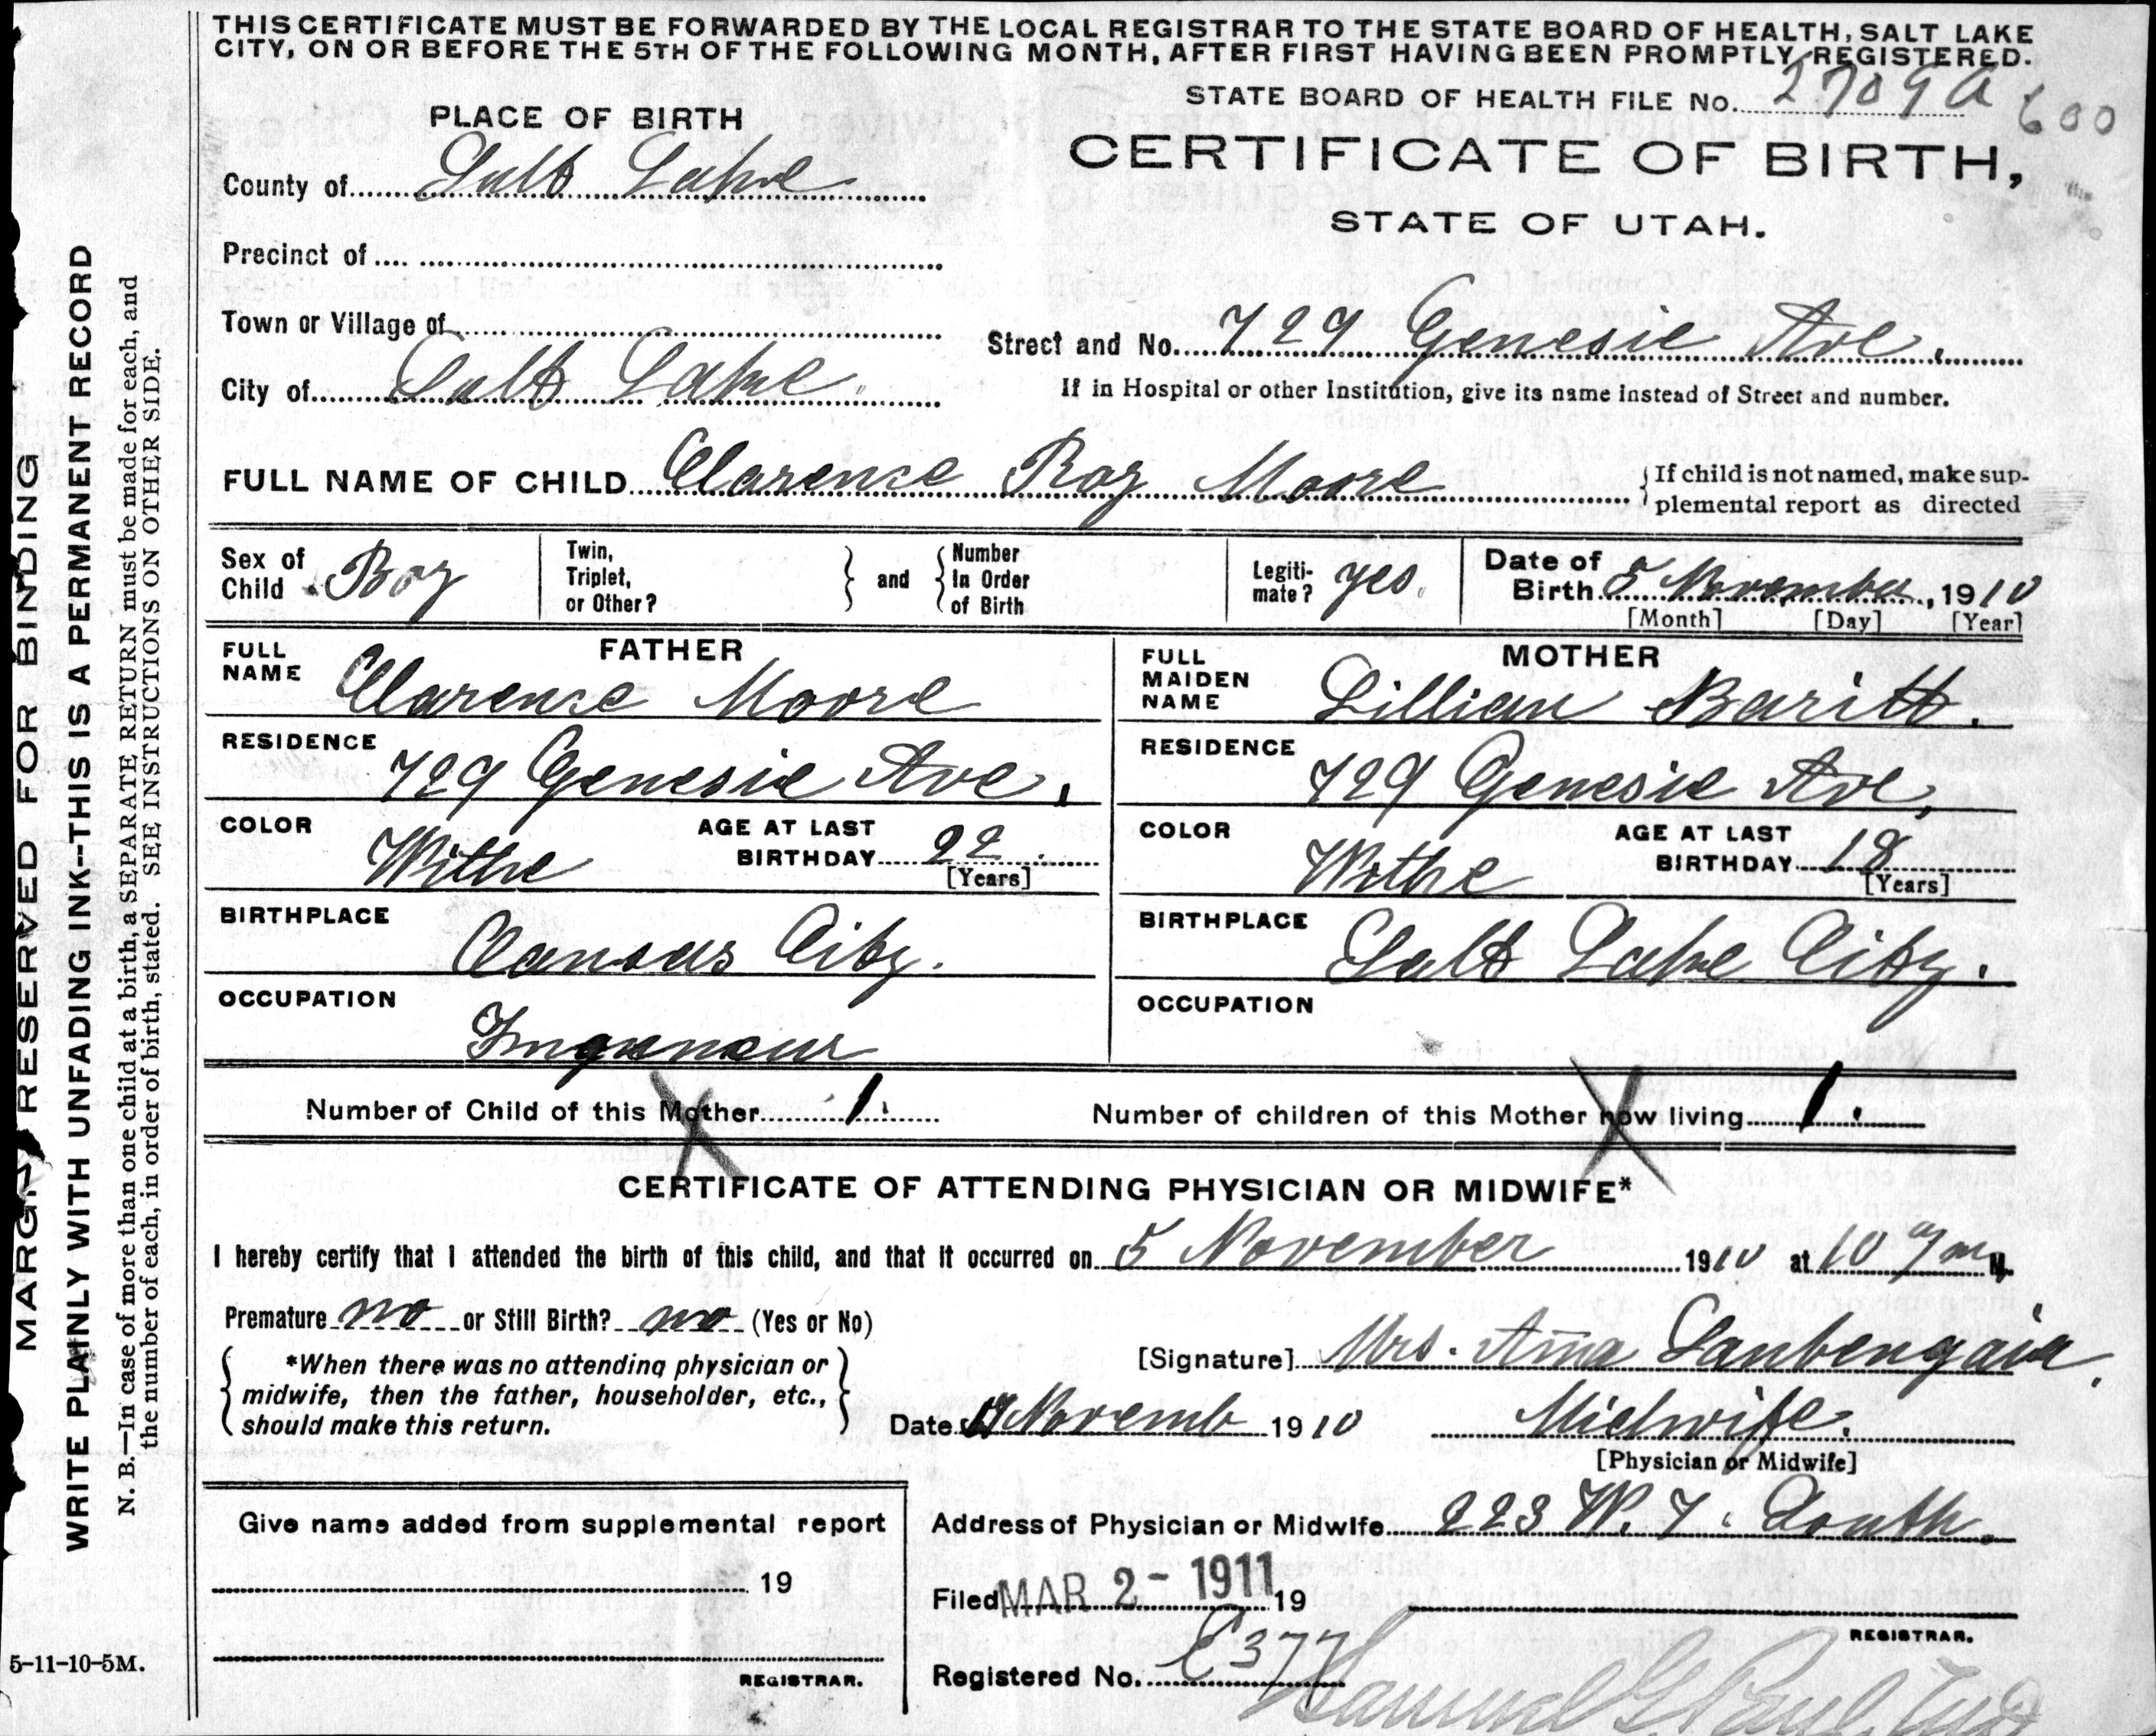 THIS CERTIFICATE MUST BE FORWARDED BY THE LOCAL REGISTRAR TO THE STATE BOARD OF HEALTH, SALT LAKE
CITY, ON OR BEFORE THE 5TH OF THE FOLLOWING MONTH, AFTER FIRST HAVING BEEN PROMPTLY REGISTERED.
STATE BOARD OF HEALTH FILE No. 2709 a 600
PLACE OF BIRTH
CERTIFICATE OF BIRTH,
STATE OF UTAH.
County of Salt Lake
Precinct of
Town or Village of
Street and No. 729 Genesie Ave.
City of Salt Lake
If in Hospital or other Institution, give its name instead of Street and number.
FULL NAME OF CHILD Clarense Roy Moore
If child is not named, make sup-
plemental report as directed
Sex of Child Boy
Twin, Triplet, or Other?
and
Number In Order of Birth
Legiti-mate? yes.
Date of Birth 5 November, 1910
[Month] [Day] [Year]
FATHER
FULL NAME Clarense Moore
RESIDENCE 729 Genesie Ave.
COLOR Withe
AGE AT LAST BIRTHDAY 22
[Years]
BIRTHPLACE Cansas City.
OCCUPATION
MOTHER
FULL MAIDEN NAME Lillian Baritt.
RESIDENCE 729 Genesie Ave,
COLOR Withe
AGE AT LAST BIRTHDAY 18
[Years]
BIRTHPLACE Salt Lake City.
OCCUPATION
Number of Child of this Mother 1.
Number of children of this Mother now living 1.
CERTIFICATE OF ATTENDING PHYSICIAN OR MIDWIFE*
I hereby certify that I attended the birth of this child, and that it occurred on 5 November 1910 at 10 am M.
Premature no or Still Birth? no (Yes or No)
*When there was no attending physician or
midwife, then the father, householder, etc.,
should make this return.
[Signature] Mrs. Anna
Date Novemb 1910
Midwife.
[Physician or Midwife]
Address of Physician or Midwife 223 W. 7. South.
Give name added from supplemental report
19
REGISTRAR.
Filed MAR 2 - 1911 19
REGISTRAR.
Registered No. C377
Samuel G. Paul
5-11-10-5M.
MARGIN RESERVED FOR BINDING
WRITE PLAINLY WITH UNFADING INK--THIS IS A PERMANENT RECORD
N. B.—In case of more than one child at a birth, a SEPARATE RETURN must be made for each, and
the number of each, in order of birth, stated. SEE INSTRUCTIONS ON OTHER SIDE.